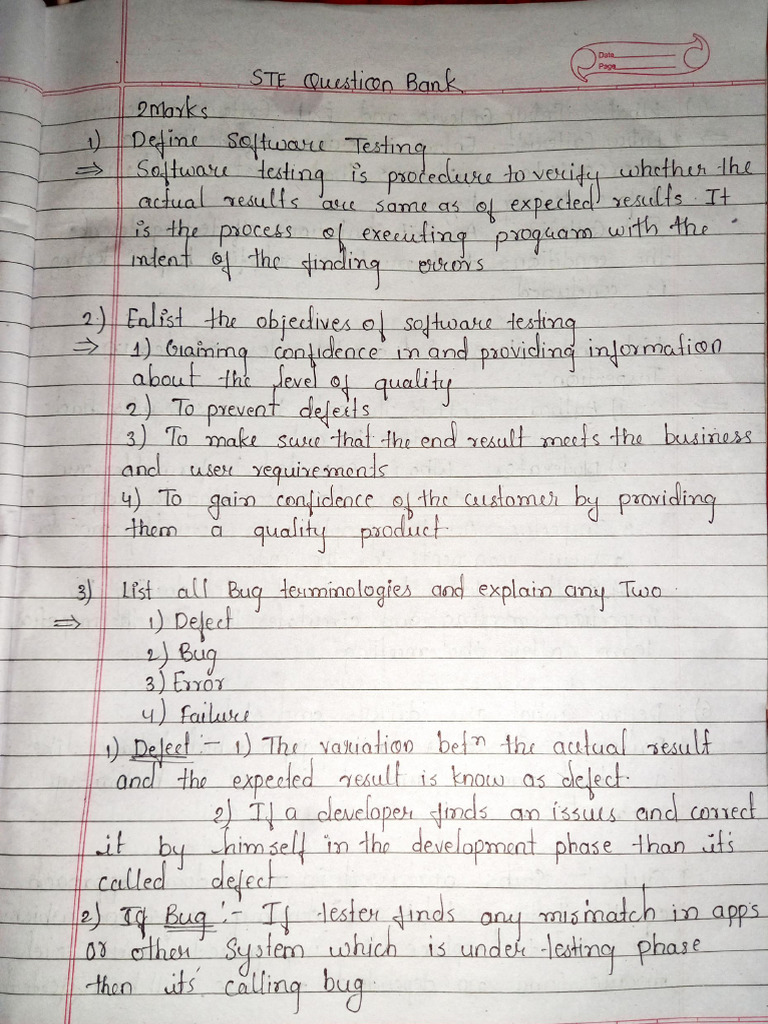 Date
Page
STE Question Bank
2Marks
1) Define Software Testing
⇒ Software testing is procedure to verify whether the
actual results are same as of expected results. It
is the process of executing program with the
intent of the finding errors
2) Enlist the objectives of software testing
⇒ 1) Gaining confidence in and providing information
about the level of quality
2) To prevent defects
3) To make sure that the end result meets the business
and user requirements
4) To gain confidence of the customer by providing
them a quality product.
3) List all Bug terminologies and explain any Two.
⇒ 1) Defect
2) Bug
3) Error
4) Failure
1) Defect :- 1) The variation betn the actual result
and the expected result is know as defect.
2) If a developer finds an issues and correct
it by himself in the development phase than it's
called defect
2) If Bug :- If tester finds any mismatch in apps
or other System which is under testing phase
then it's calling bug.